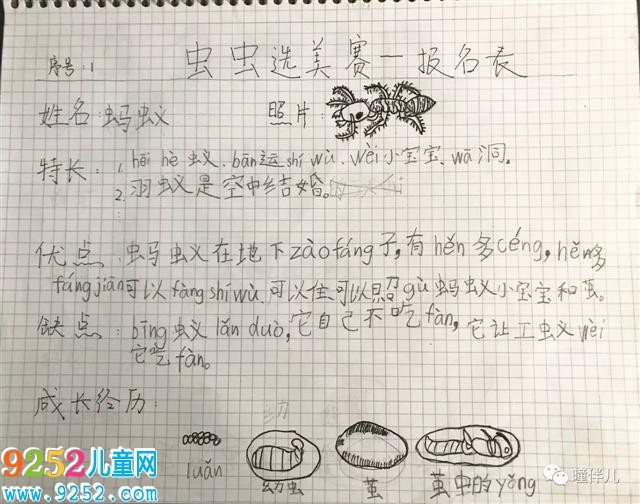 序号:1
虫虫选美赛—报名表
姓名:蚂蚁
照片:
特长:1. hāi hè 蚁、bān运shí wù、wèi小宝宝、wā洞。
2. 羽蚁是空中结婚。
优点:蚂蚁在地下zào fáng子,有hěn多céng,hěn多
fáng jiān可以fàng shí wù、可以住可以照gù蚂蚁小宝宝和茧。
缺点:bīng蚁lǎn duò,它自己不吃fàn,它让工蚁wèi
它吃fàn。
成长经历:
幼
luǎn
幼虫
茧
茧中的yǒng
9252儿童网
www.9252.com
瞳伴儿